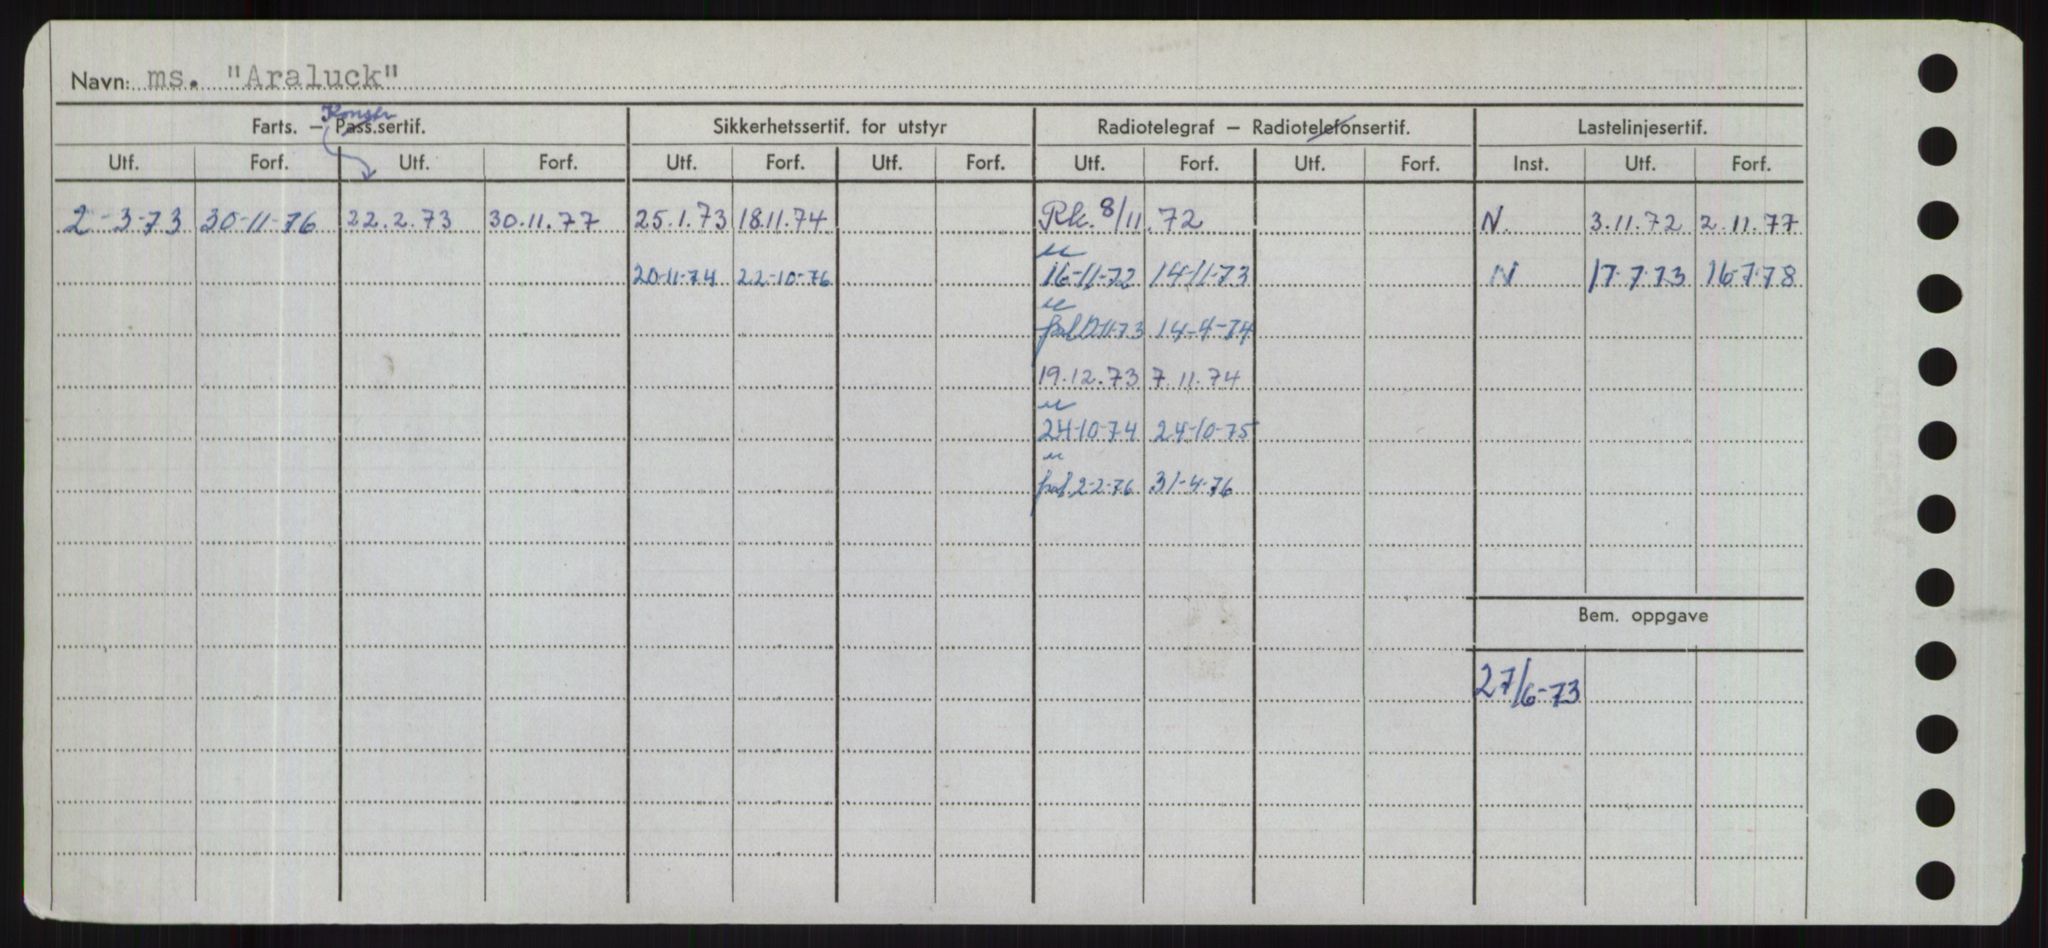 Navn: ms. "Araluck"
Konstr
Farts. – Pass.sertif. Sikkerhetssertif. for utstyr Radiotelegraf – Radiotelefonsertif. Lastelinjesertif.
Utf. Forf. Utf. Forf. Utf. Forf. Utf. Forf. Utf. Forf. Utf. Forf. Inst. Utf. Forf.
2-3-73 30-11-76 22.2.73 30.11.77 25.1.73 18.11.74 Rk. 8/11.72 N. 3.11.72 2.11.77
20-11-74 22-10-76 16-11-72 14-11-73 N 17.7.73 16.7.78
14-4-74
19.12.73 7.11.74
24-10-74 24-10-75
2-2-76 31-4-76
Bem. oppgave
27/6-73